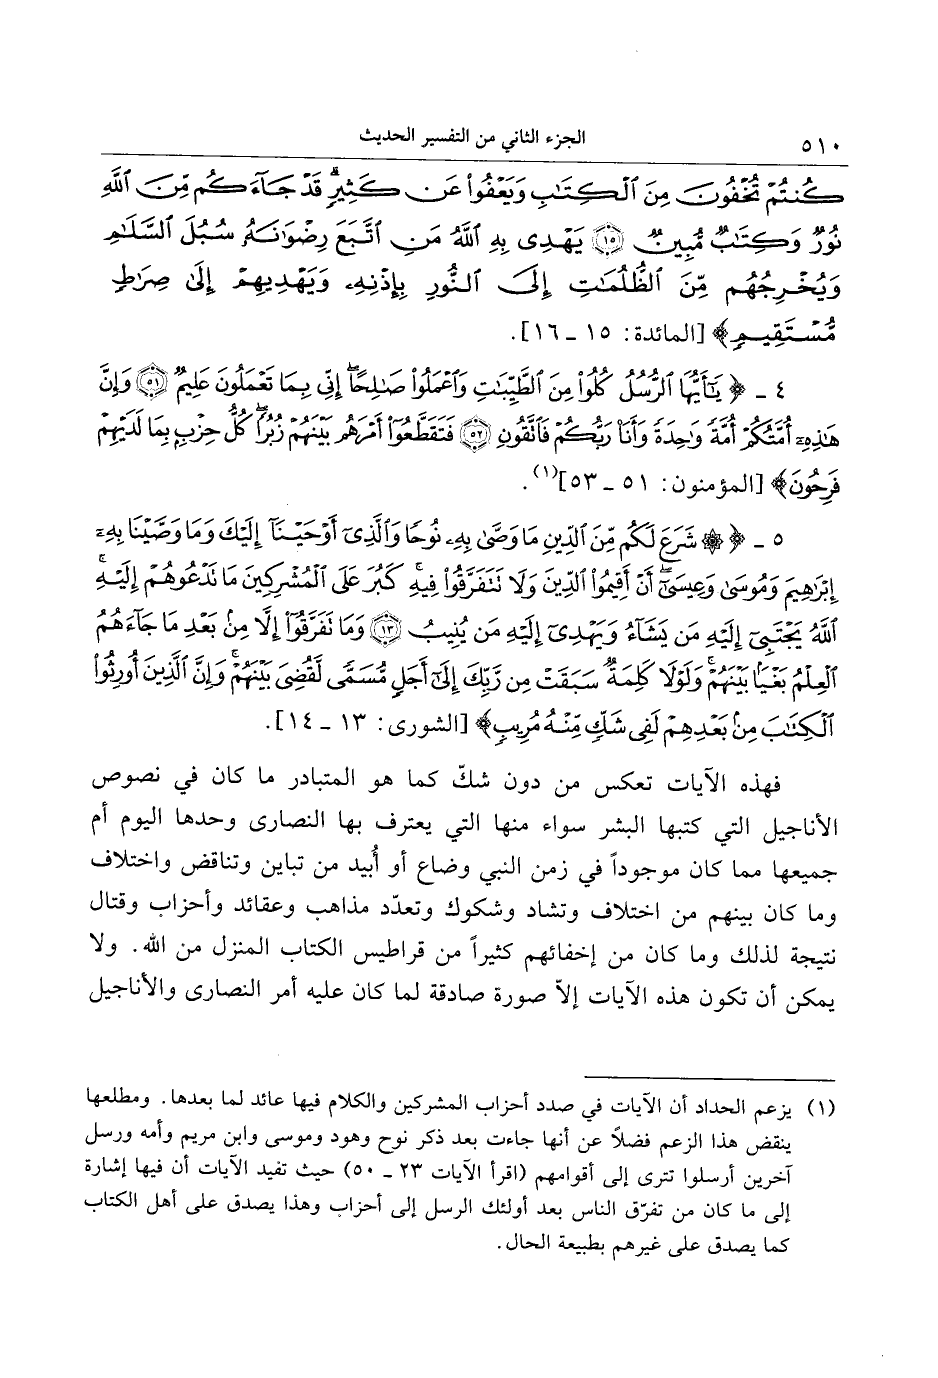 ٥١٠ الجزء الثاني من التفسير الحديث
كُنتُمْ تُخْفُونَ مِنَ ٱلْكِتَٰبِ وَيَعْفُوا۟ عَن كَثِيرٍۢ ۚ قَدْ جَآءَكُم مِّنَ ٱللَّهِ
نُورٌۭ وَكِتَٰبٌۭ مُّبِينٌۭ ﴿١٥﴾ يَهْدِى بِهِ ٱللَّهُ مَنِ ٱتَّبَعَ رِضْوَٰنَهُۥ سُبُلَ ٱلسَّلَٰمِ
وَيُخْرِجُهُم مِّنَ ٱلظُّلُمَٰتِ إِلَى ٱلنُّورِ بِإِذْنِهِۦ وَيَهْدِيهِمْ إِلَىٰ صِرَٰطٍۢ
مُّسْتَقِيمٍ﴾ [المائدة: ١٥ ـ ١٦].
٤ ـ ﴿يَٰٓأَيُّهَا ٱلرُّسُلُ كُلُوا۟ مِنَ ٱلطَّيِّبَٰتِ وَٱعْمَلُوا۟ صَٰلِحًا ۖ إِنِّى بِمَا تَعْمَلُونَ عَلِيمٌۭ ﴿٥١﴾ وَإِنَّ
هَٰذِهِۦٓ أُمَّتُكُمْ أُمَّةًۭ وَٰحِدَةًۭ وَأَنَا۠ رَبُّكُمْ فَٱتَّقُونِ ﴿٥٢﴾ فَتَقَطَّعُوٓا۟ أَمْرَهُم بَيْنَهُمْ زُبُرًۭا ۖ كُلُّ حِزْبٍۭ بِمَا لَدَيْهِمْ
فَرِحُونَ﴾ [المؤمنون: ٥١ ـ ٥٣](١).
٥ ـ ﴿۞ شَرَعَ لَكُم مِّنَ ٱلدِّينِ مَا وَصَّىٰ بِهِۦ نُوحًۭا وَٱلَّذِىٓ أَوْحَيْنَآ إِلَيْكَ وَمَا وَصَّيْنَا بِهِۦٓ
إِبْرَٰهِيمَ وَمُوسَىٰ وَعِيسَىٰٓ ۖ أَنْ أَقِيمُوا۟ ٱلدِّينَ وَلَا تَتَفَرَّقُوا۟ فِيهِ ۚ كَبُرَ عَلَى ٱلْمُشْرِكِينَ مَا تَدْعُوهُمْ إِلَيْهِ ۚ
ٱللَّهُ يَجْتَبِىٓ إِلَيْهِ مَن يَشَآءُ وَيَهْدِىٓ إِلَيْهِ مَن يُنِيبُ ﴿١٣﴾ وَمَا تَفَرَّقُوٓا۟ إِلَّا مِنۢ بَعْدِ مَا جَآءَهُمُ
ٱلْعِلْمُ بَغْيًۢا بَيْنَهُمْ ۚ وَلَوْلَا كَلِمَةٌۭ سَبَقَتْ مِن رَّبِّكَ إِلَىٰٓ أَجَلٍۢ مُّسَمًّۭى لَّقُضِىَ بَيْنَهُمْ ۚ وَإِنَّ ٱلَّذِينَ أُورِثُوا۟
ٱلْكِتَٰبَ مِنۢ بَعْدِهِمْ لَفِى شَكٍّۢ مِّنْهُ مُرِيبٍۢ﴾ [الشورى: ١٣ ـ ١٤].
فهذه الآيات تعكس من دون شكّ كما هو المتبادر ما كان في نصوص
الأناجيل التي كتبها البشر سواء منها التي يعترف بها النصارى وحدها اليوم أم
جميعها مما كان موجوداً في زمن النبي وضاع أو أُبيد من تباين وتناقض واختلاف
وما كان بينهم من اختلاف وتشاد وشكوك وتعدّد مذاهب وعقائد وأحزاب وقتال
نتيجة لذلك وما كان من إخفائهم كثيراً من قراطيس الكتاب المنزل من الله. ولا
يمكن أن تكون هذه الآيات إلاّ صورة صادقة لما كان عليه أمر النصارى والأناجيل
(١) يزعم الحداد أن الآيات في صدد أحزاب المشركين والكلام فيها عائد لما بعدها. ومطلعها
ينقض هذا الزعم فضلاً عن أنها جاءت بعد ذكر نوح وهود وموسى وابن مريم وأمه ورسل
آخرين أرسلوا تترى إلى أقوامهم (اقرأ الآيات ٢٣ ـ ٥٠) حيث تفيد الآيات أن فيها إشارة
إلى ما كان من تفرّق الناس بعد أولئك الرسل إلى أحزاب وهذا يصدق على أهل الكتاب
كما يصدق على غيرهم بطبيعة الحال.